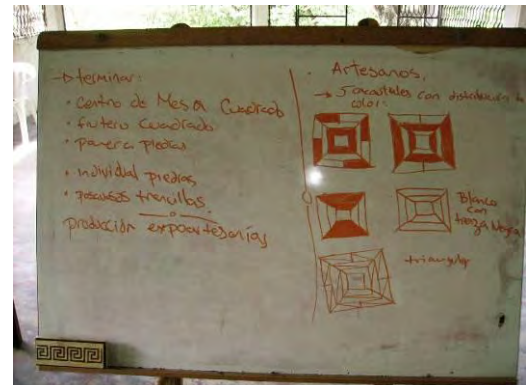 → terminar:
• Centro de Mesa Cuadrado
• frutero Cuadrado
• panera piedras
• individual piedras
• trenullas.
producción expoartesanías
• Artesanos.
→ 5 con distribución
color:
Blanco
con
trenza negra
triangular